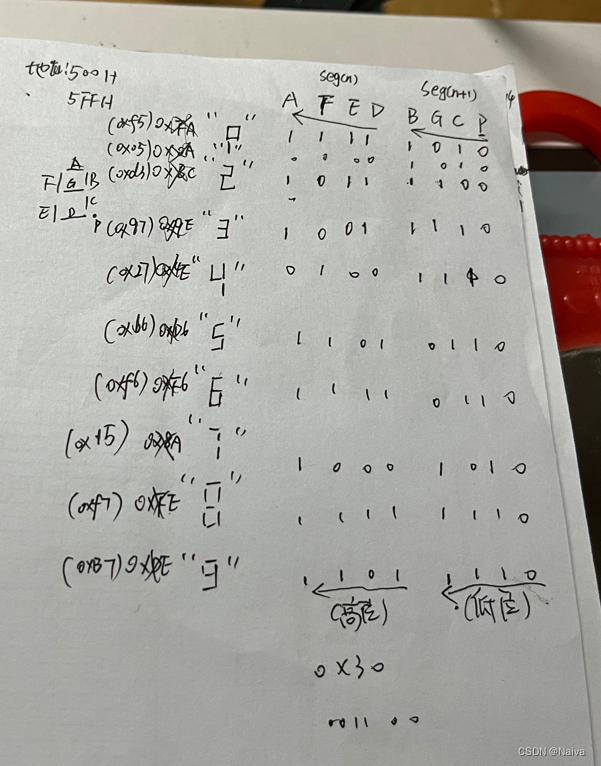 地址:5001H
5FFH
seg(n) seg(n+1)
A F E D B G C P
(0xf5) "0" 1 1 1 1 1 0 1 0
(0x05) "1" 0 0 0 0 1 0 1 0
(0xd3) "2" 1 0 1 1 1 1 0 0
A
F G B
E D C
P
(0x97) "3" 1 0 0 1 1 1 1 0
(0x27) "4" 0 1 0 0 1 1 1 0
(0xb6) "5" 1 1 0 1 0 1 1 0
(0xf6) "6" 1 1 1 1 0 1 1 0
(0x15) "7" 1 0 0 0 1 0 1 0
(0xf7) 1 1 1 1 1 1 1 0
(0xB7) "9" 1 1 0 1 1 1 1 0
(高位) (低位)
0x30
0011 00
CSDN @Naiva